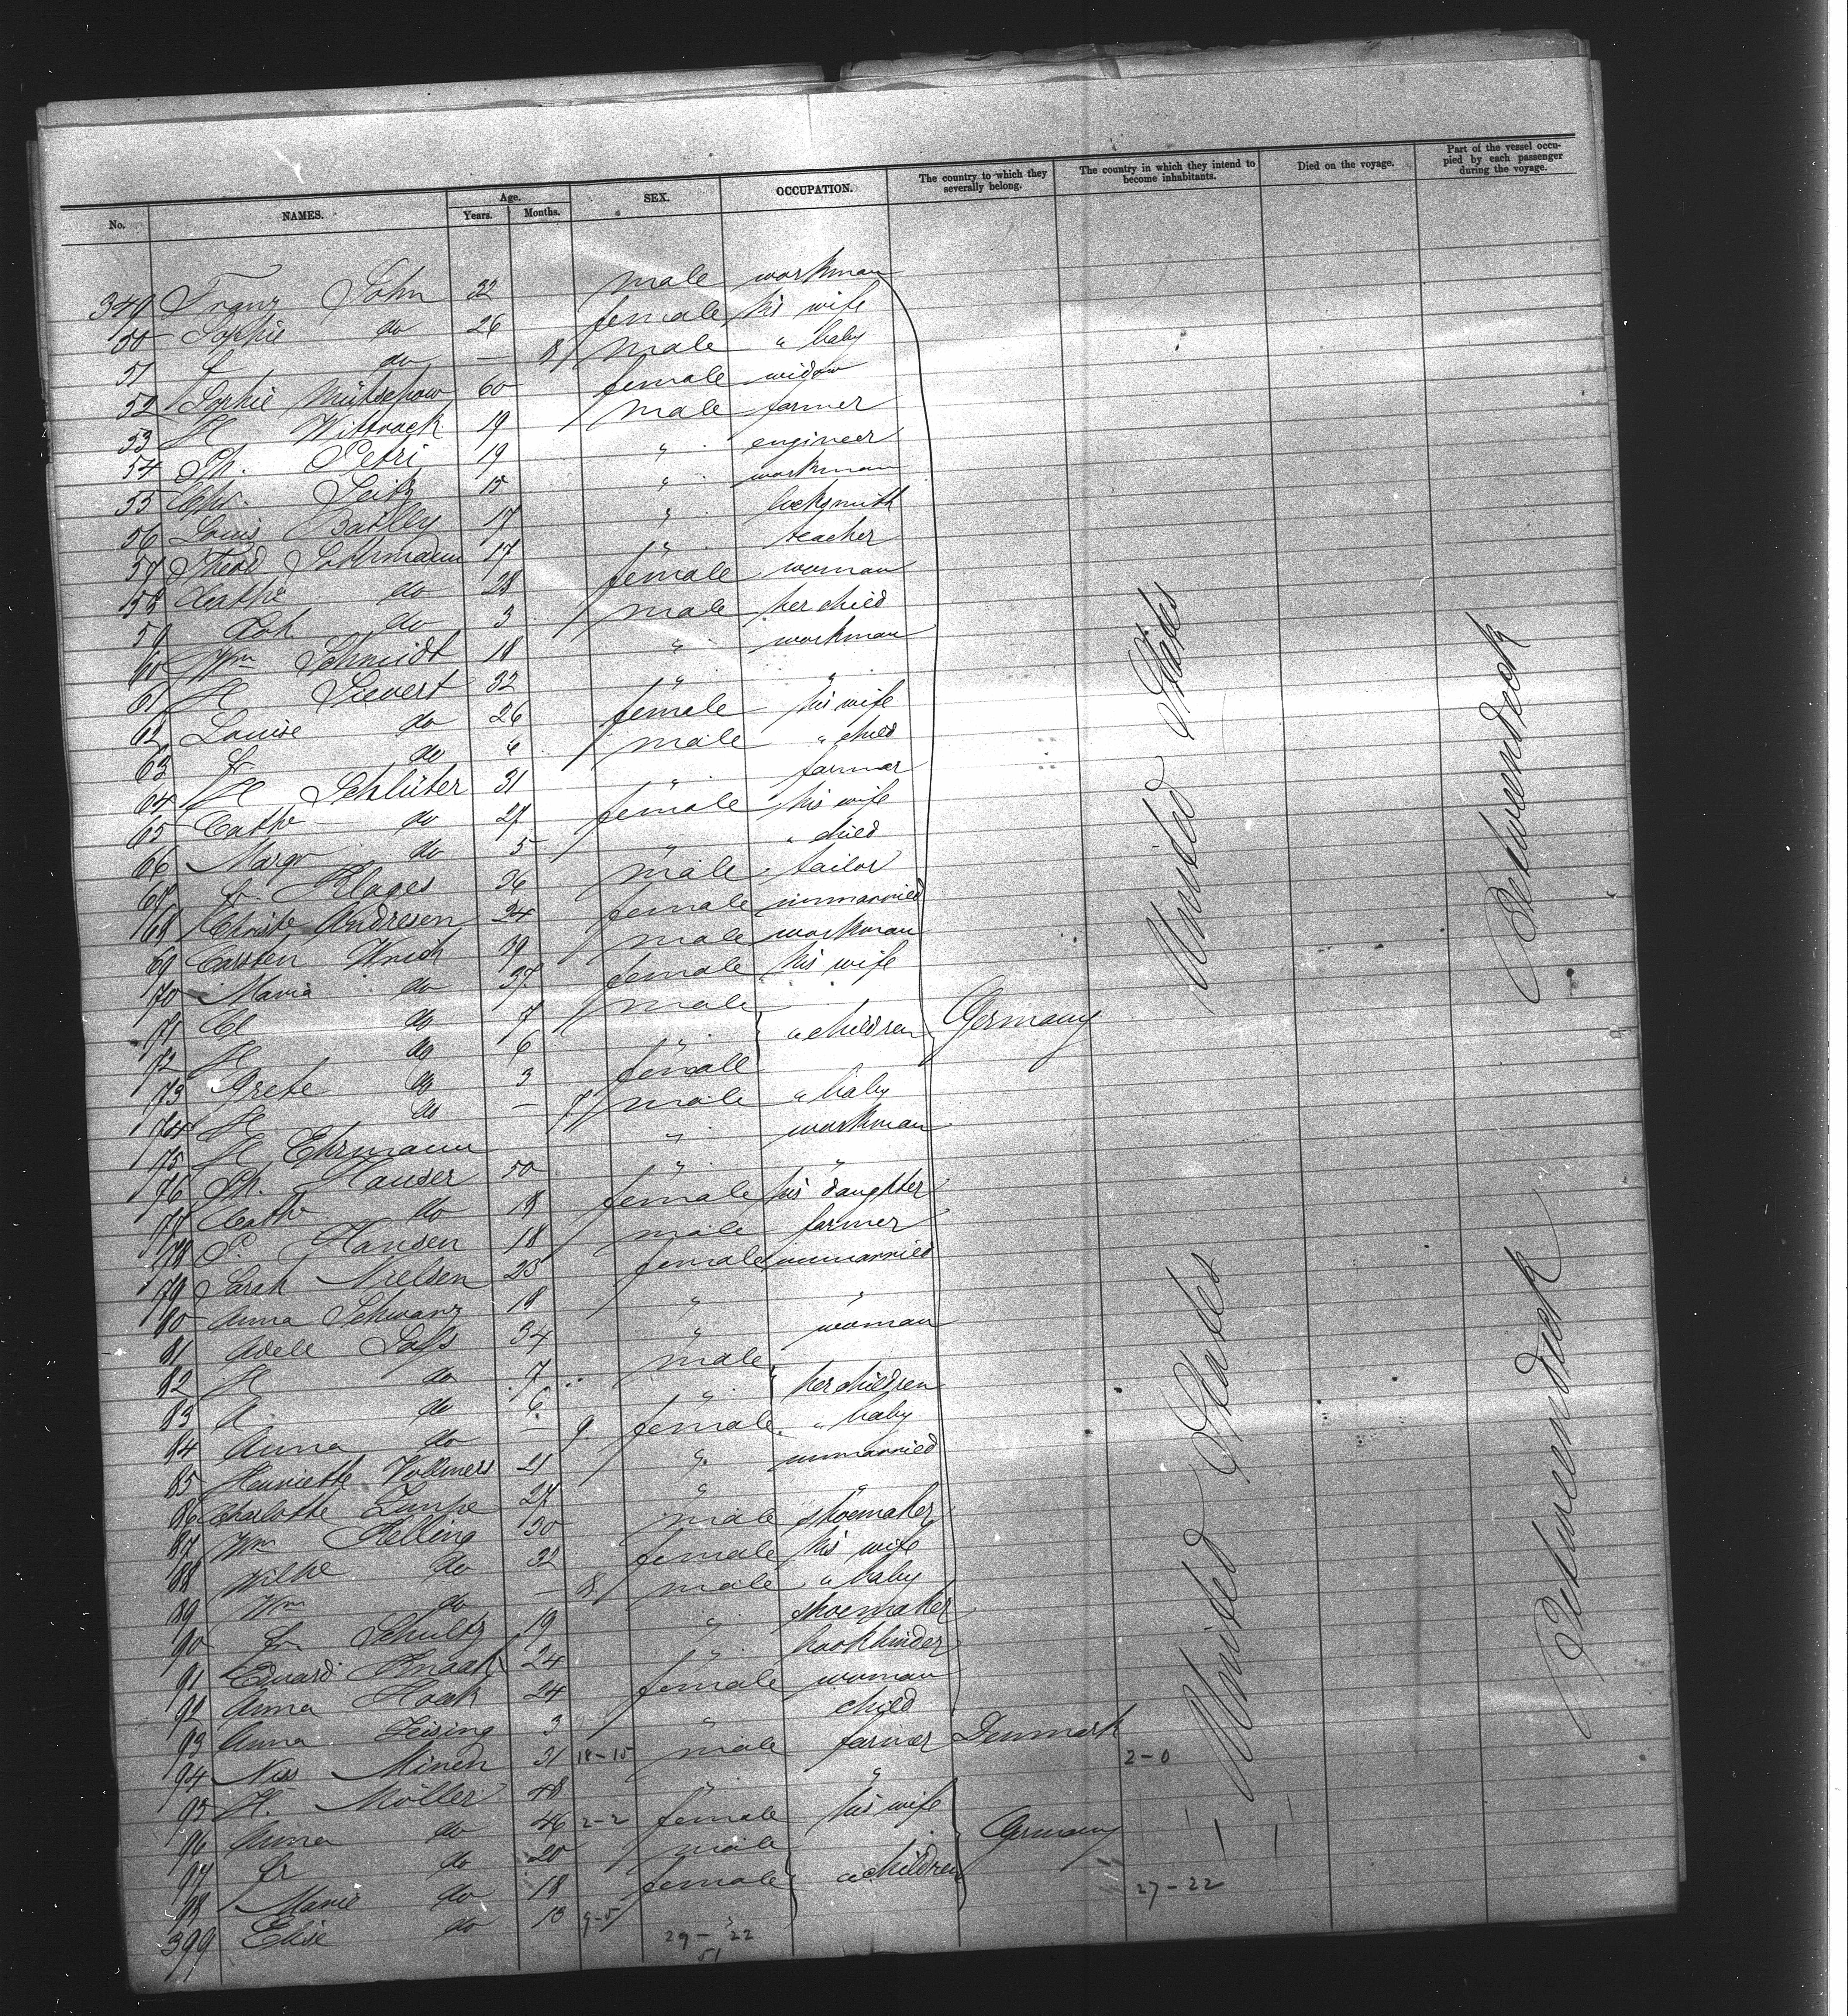 No. NAMES. Age. Years. Months. SEX. OCCUPATION. The country to which they severally belong. The country in which they intend to become inhabitants. Died on the voyage. Part of the vessel occupied by each passenger during the voyage.
349 Franz John 32 male workman
50 Sophie do 26 female his wife
51 do — 8 male " baby
52 Sophie 60 female widow
53 H Wittrock 19 male farmer
54 Ph. Petri 19 " engineer
55 Chr. Seitz 15 " workman
56 Louis Bailly 17 " locksmith
57 Theod 17 " teacher
58 Cathe do 28 female woman
59 Joh do 3 male her child
60 Wm Schmidt 18 " workman
61 H Sievert 32 " "
62 Louise do 26 female his wife
63 Fr do 6 male " child
64 H Schlüter 31 " farmer
65 Cathe do 27 female his wife
66 Margr do 5 " " child
67 Fr. Klages 36 male tailor
68 Christe Andresen 24 female unmarried
69 Carsten Wrich 39 male workman
70 Maria do 37 female his wife
71 Cl do 7 male " children Germany
72 H do 6 "
73 Grete do 3 female
74 H do — 7 male " baby
75 H Ehrmann " workman
76 Ph. Hauser 50 " "
77 Cathr do 18 female his daughter
78 P. Hansen 18 male farmer
79 Sarah Nielsen 23 female unmarried
80 Anna Schwarz 18 " "
81 Adele Sass 34 " woman
82 H do 7 male her children
83 A. do 6 "
84 Anna do — 9 female " baby
85 Henriette Vollmers 21 " unmarried
86 Charlotte Lampe 27 " "
87 Wm Kelling 30 male shoemaker
88 Wilhe do 32 female his wife
89 Wm do — 8 male " baby
90 Fr Schultz 19 " shoemaker
91 Eduard Knaak 24 " bookbinder
92 Anna Haak 24 female woman
93 Anna Zeising 3 " child
94 Niss 31 18-15 male farmer Denmark 2-0
95 H. Möller 48 " "
96 Anna do 46 2-2 female his wife Germany
97 Fr do 20 male " children
98 Marie do 18 female 27-22
399 Elise do 13 9-5 "
29-22
51
United States
Betweendeck
United States
Betweendeck